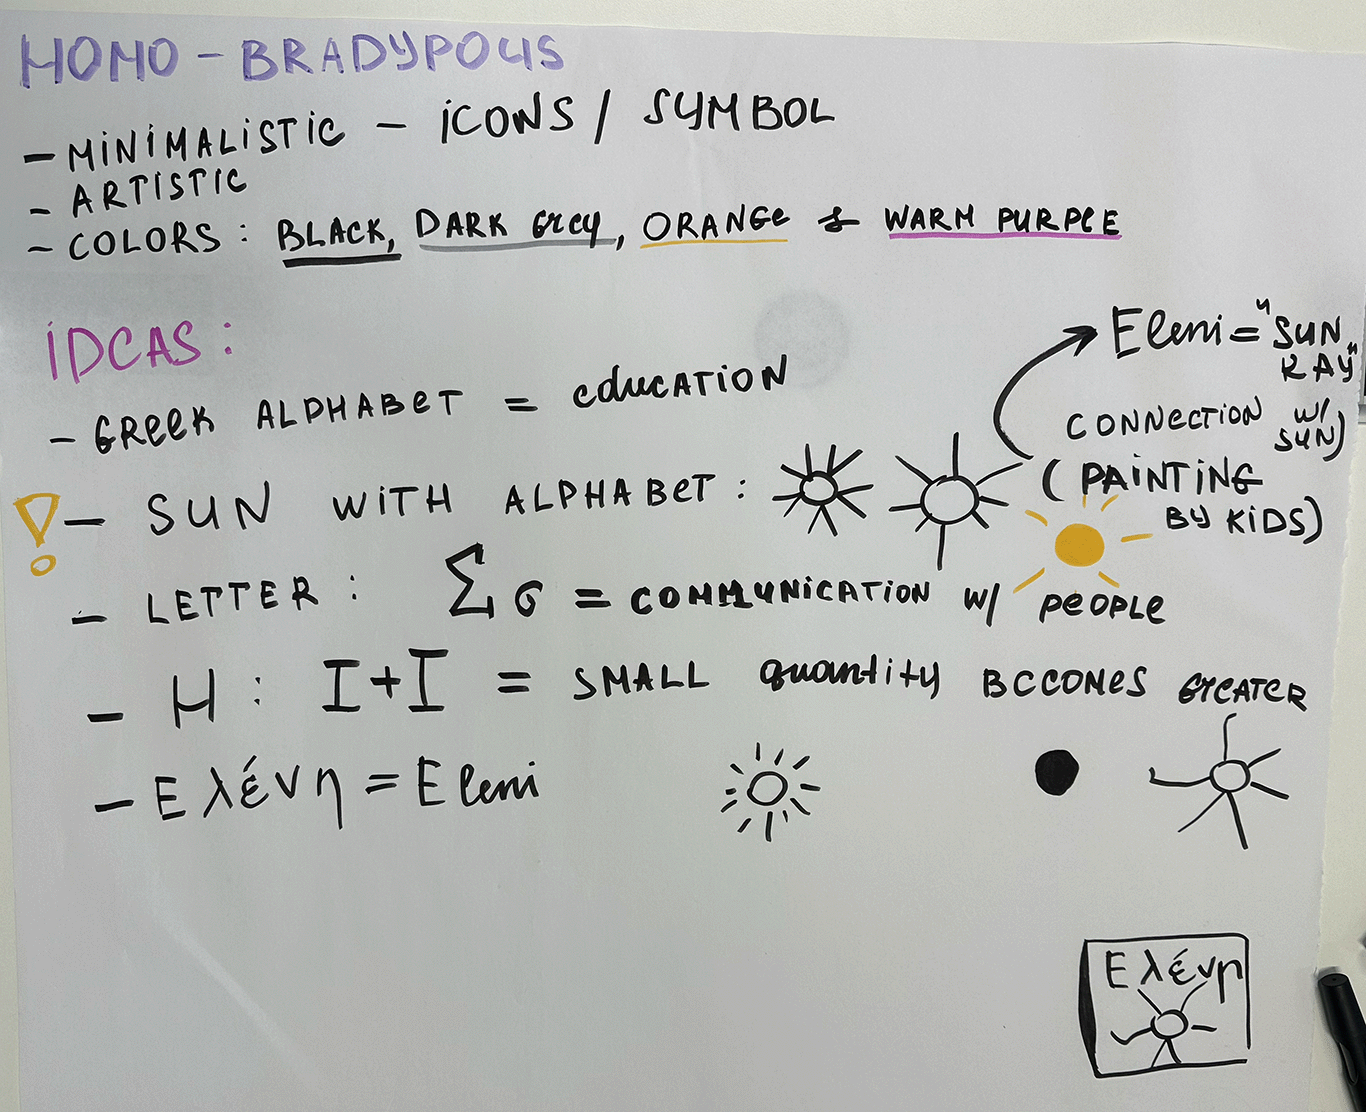 HOMO - BRADYPOUS
- MiNiMALiSTiC - iCONS / SYMBOL
- ARTISTIC
- COLORS : BLACK, DARK Grey, ORANGe & WARM PURPLE
iDEAS :
- GReeK ALPHABeT = educATiON
Eleni = "SUN RAY"
CONNECTiON w/ SUN)
- SUN WiTH ALPHABeT :
( PAiNTiNG BY KiDS)
- LETTER : Σ σ = COMMUNiCATiON w/ PeOPLe
- H : I + I = SMALL quantity BECOMeS GreATer
- Ελένη = Eleni
Ελένη